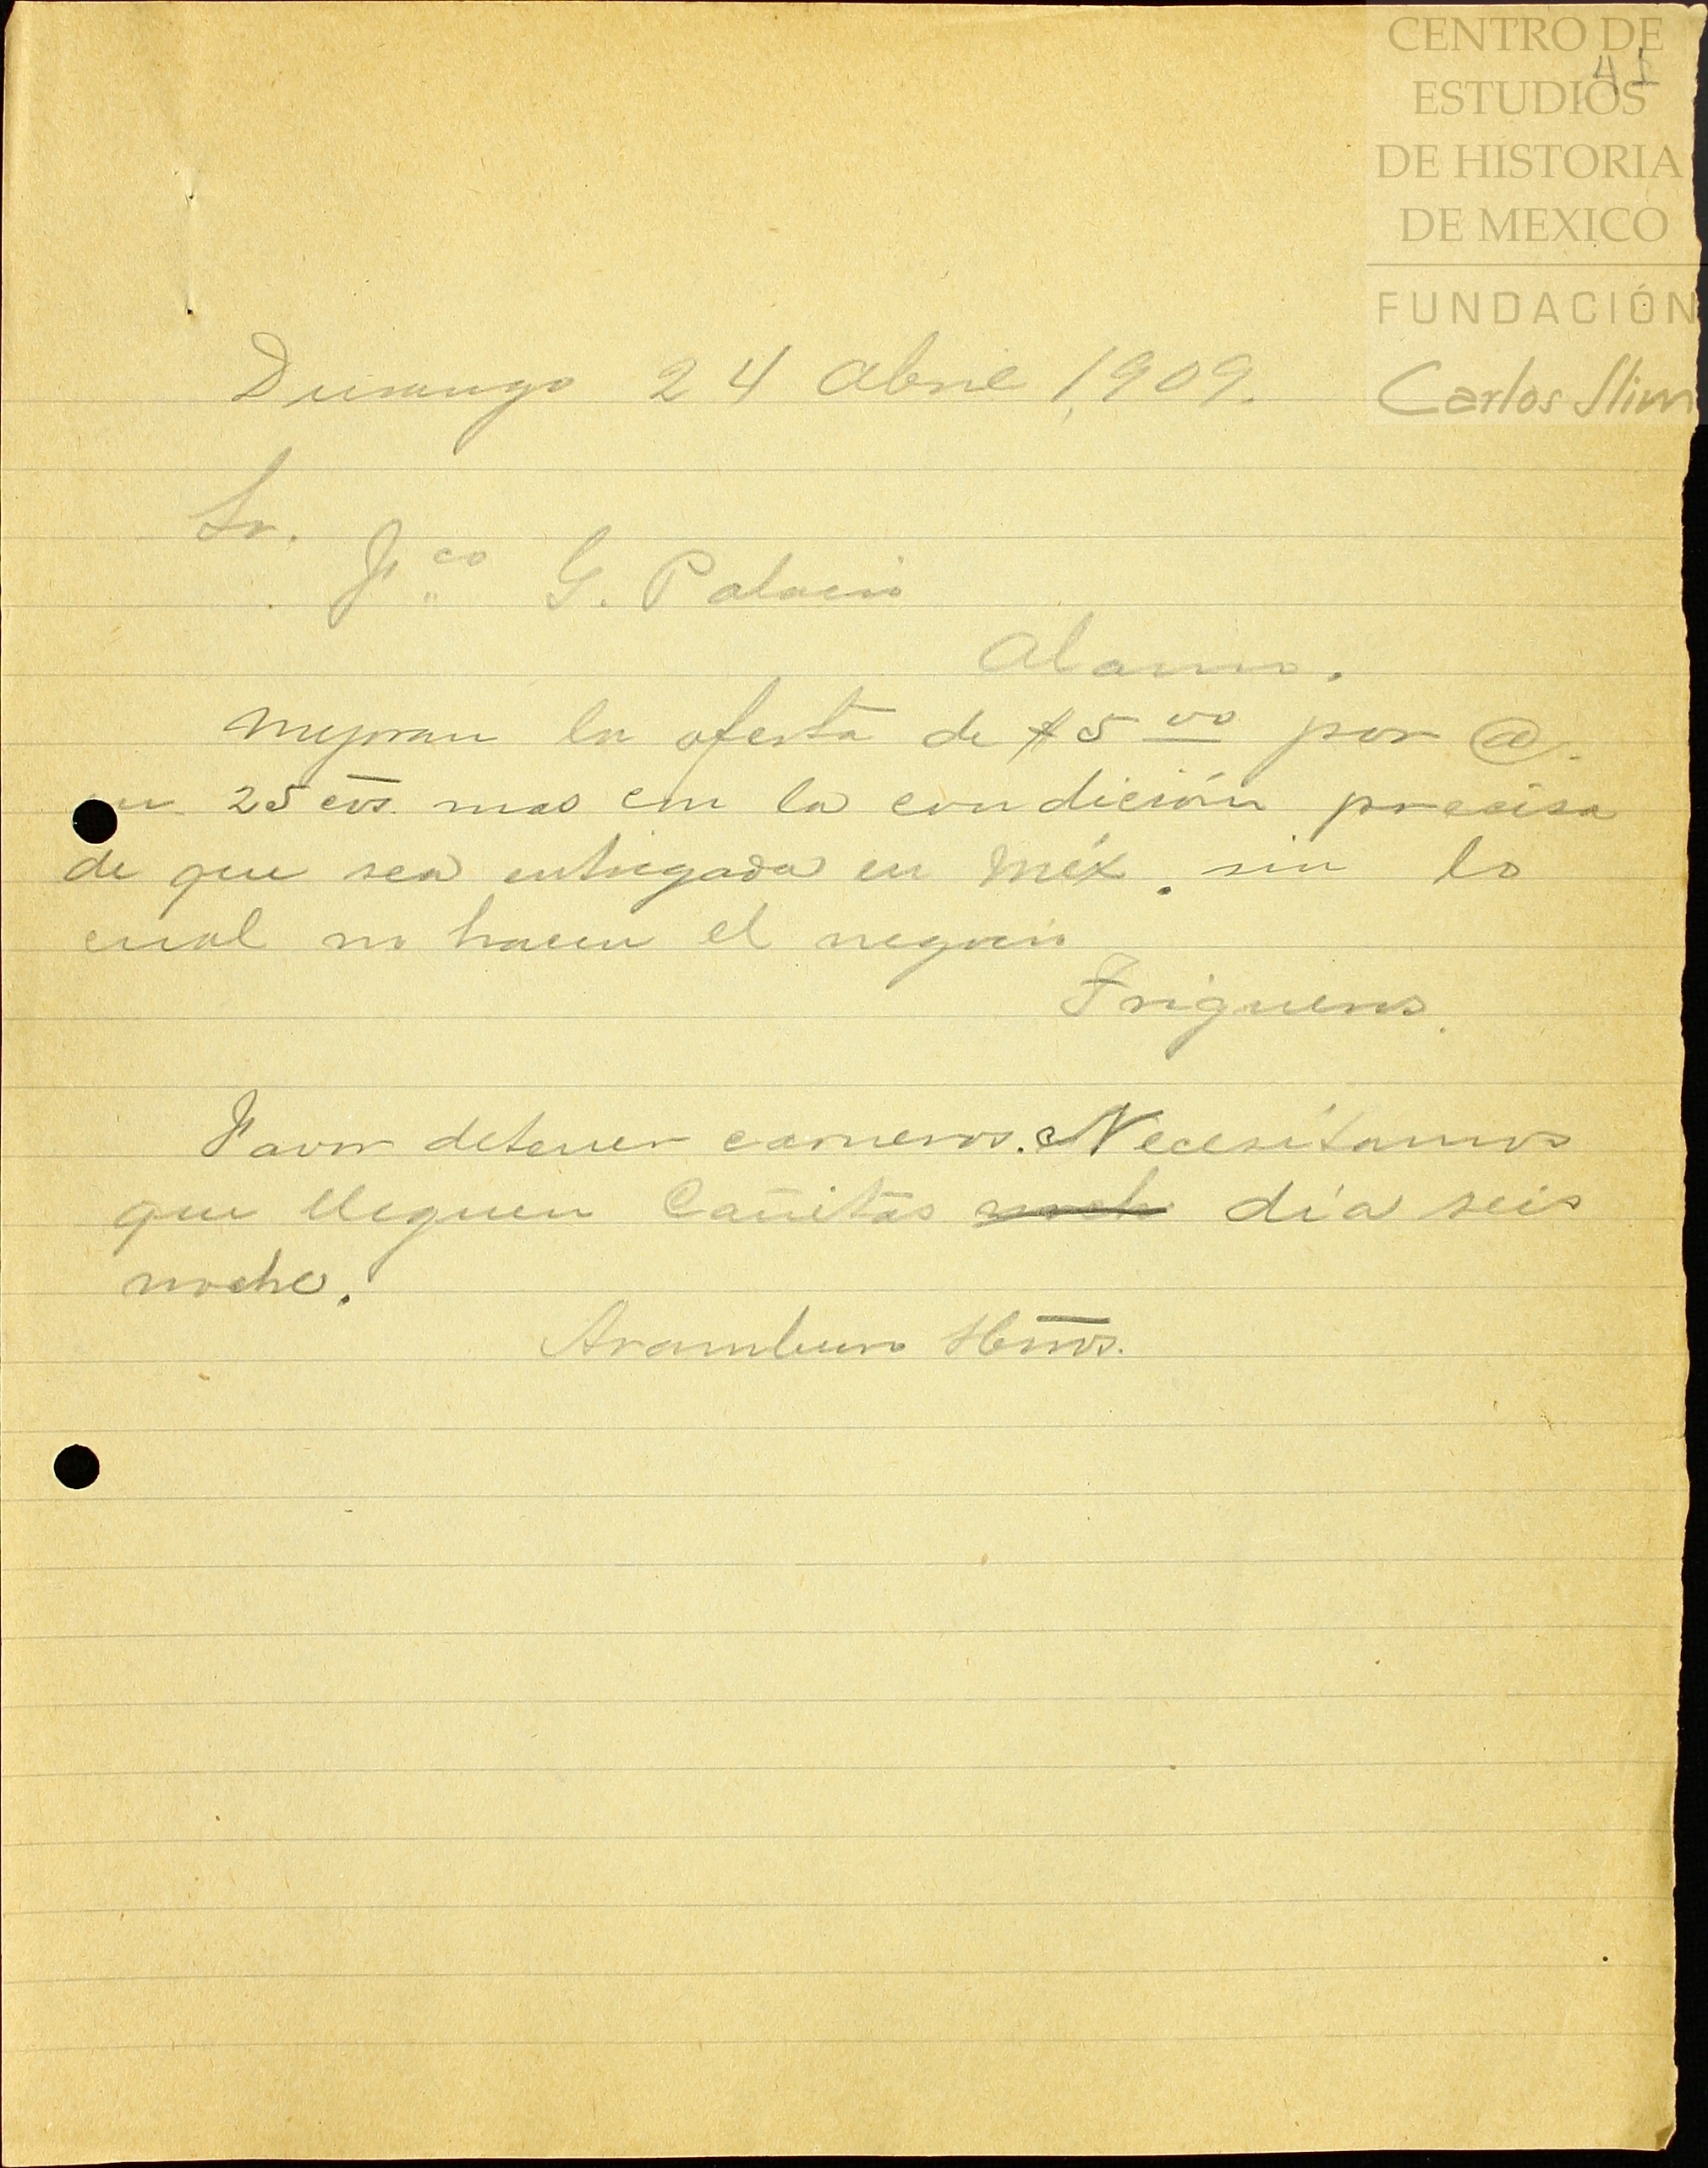 CENTRO DE
ESTUDIOS
DE HISTORIA
DE MEXICO
FUNDACIÓN
Carlos Slim
41
Durango 24 Abril 1909.
Sr.
Fco G. Palacio
Alamo.
Mejoran la oferta de $5 00 por @.
en 25 cvs. mas con la condición precisa
de que sea entregada en Méx. sin lo
cual no hacen el negocio
Trigueros
Favor detener carneros. Necesitamos
que lleguen Cañitas noch día seis
noche.
Aramburo Hnos.